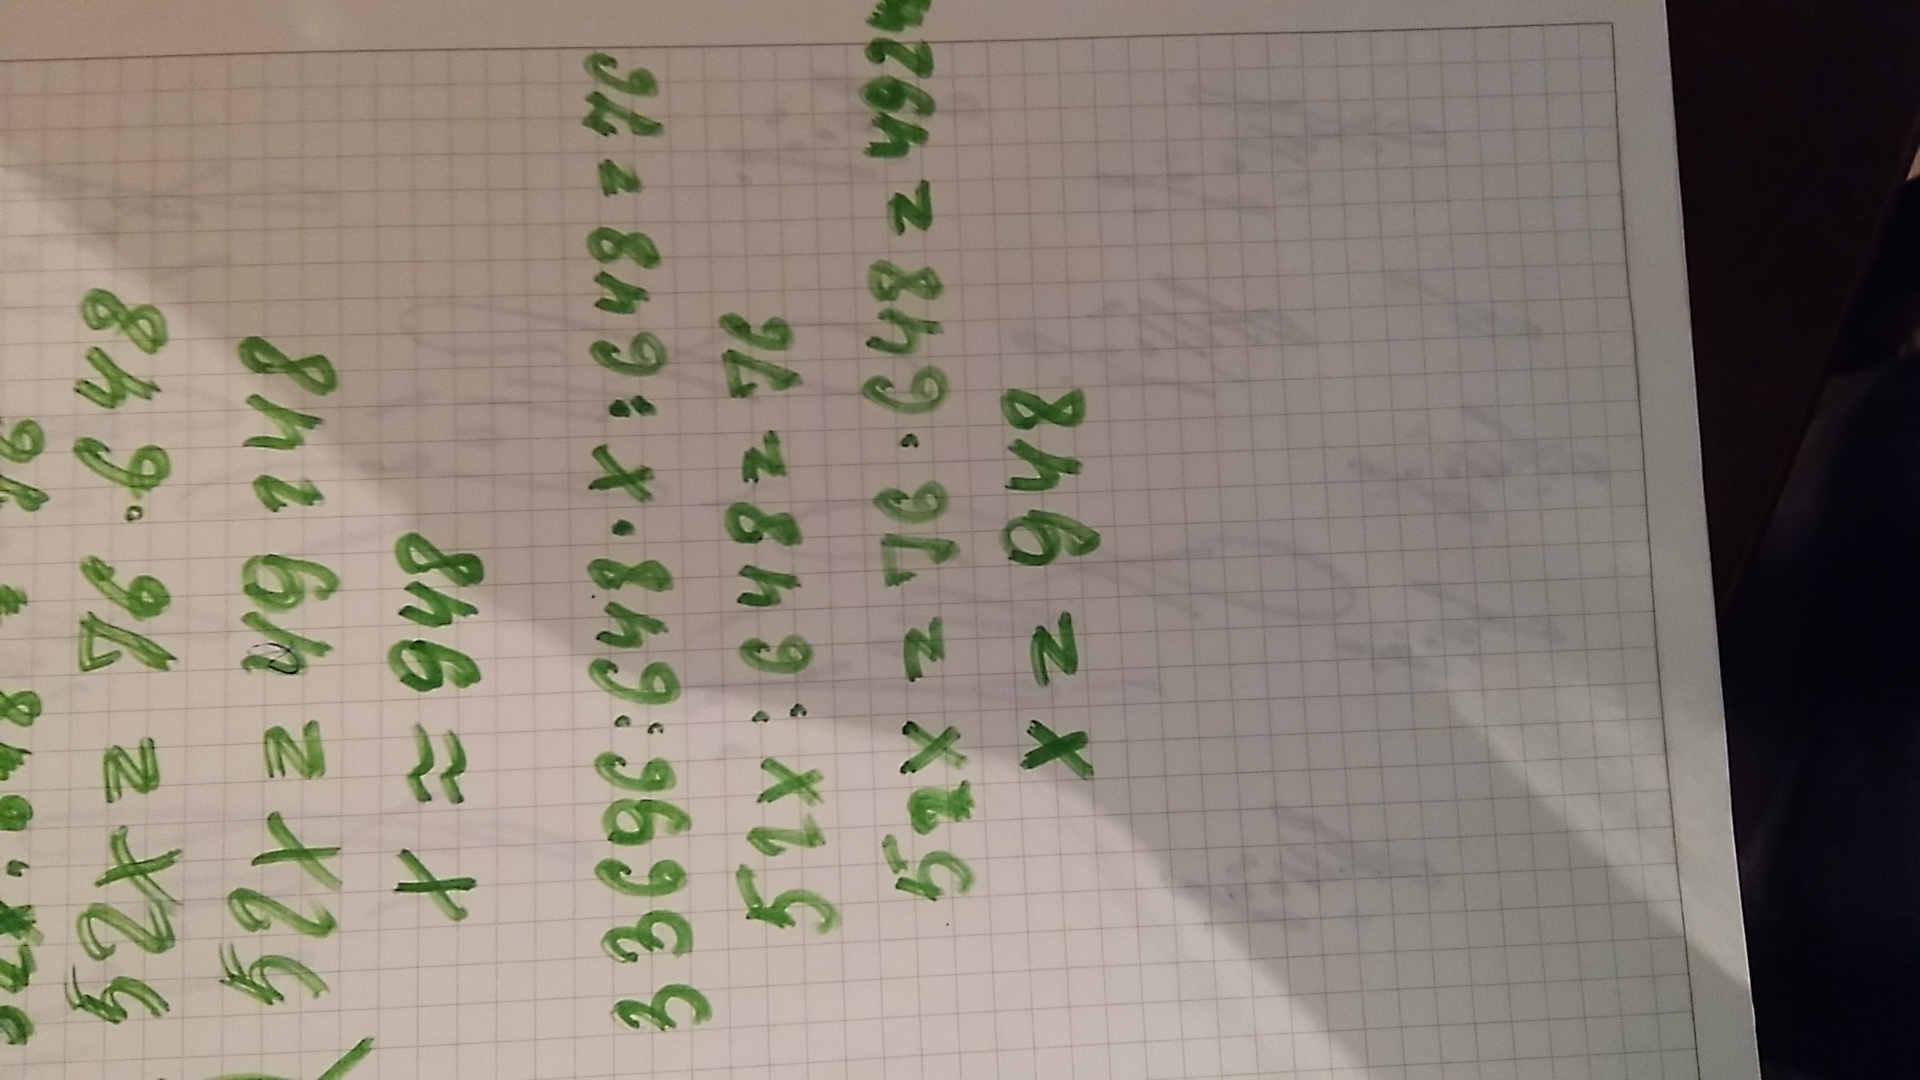 52x = 76 · 648
52x = 49248
x ≈ 948
33696 : 648 · x : 648 = 76
52x : 648 = 76
52x = 76 · 648 = 4924
x = 948